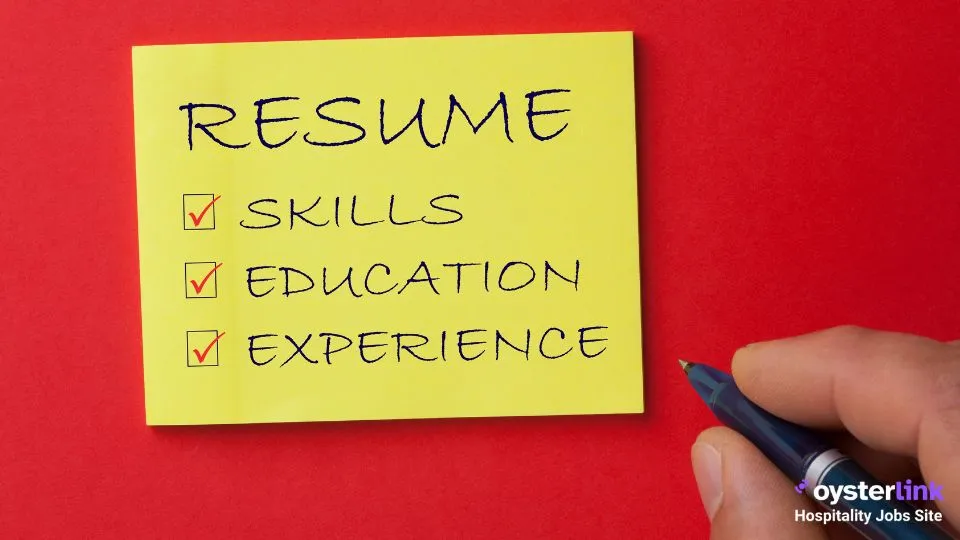 RESUME
SKILLS
EDUCATION
EXPERIENCE
oysterlink
Hospitality Jobs Site